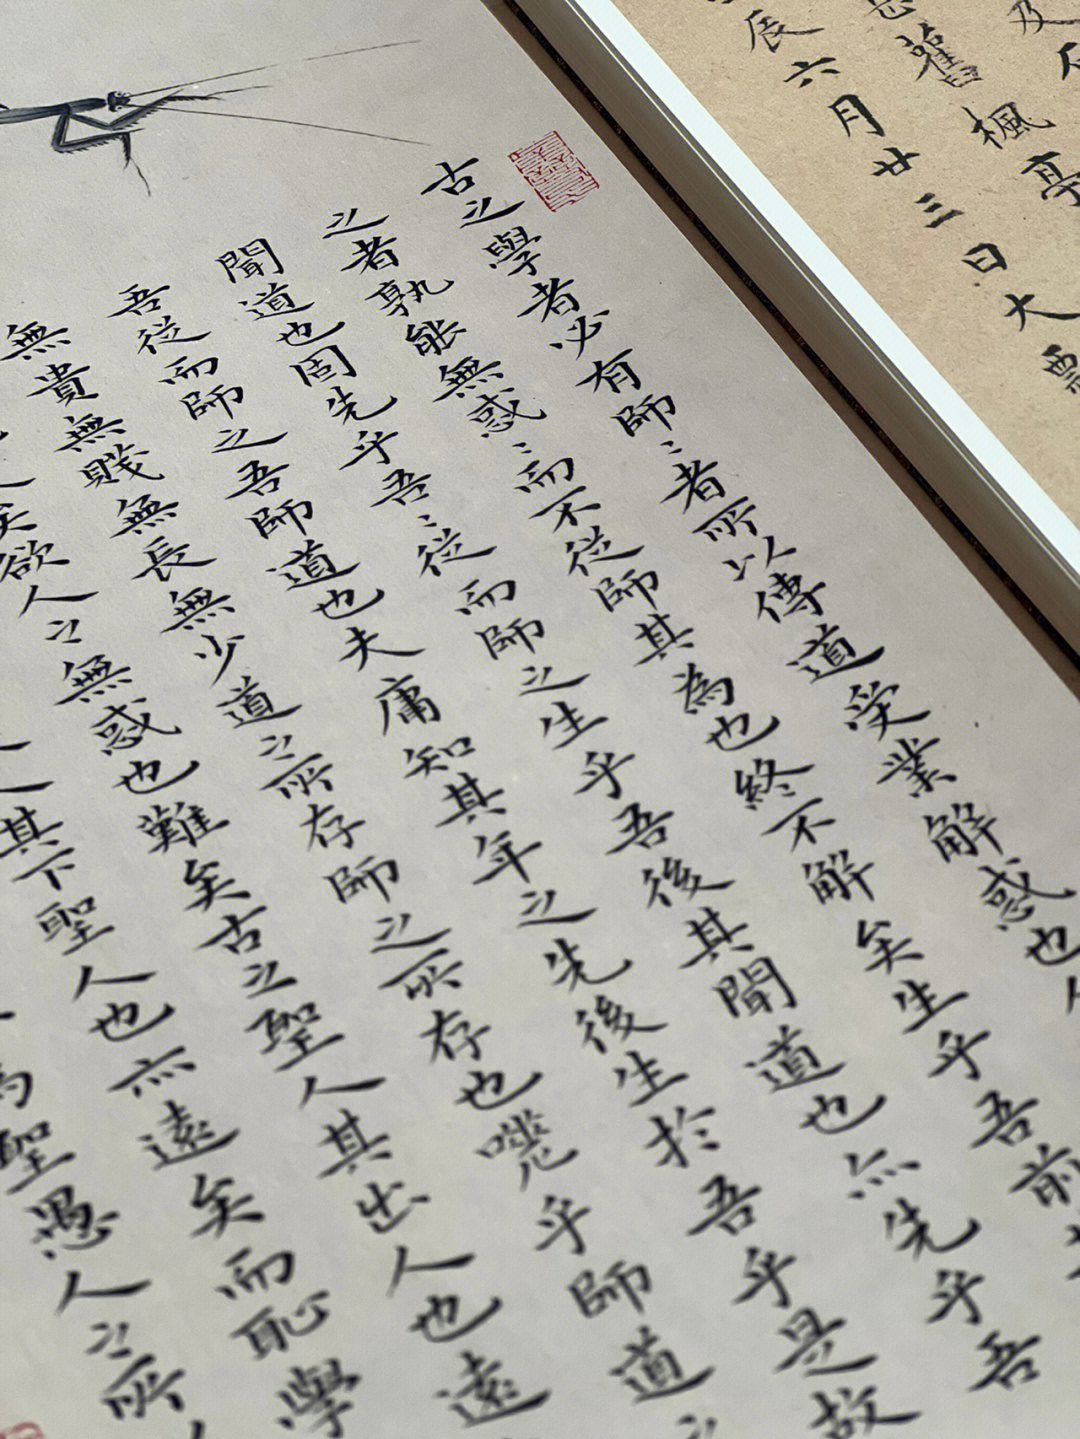 及
舊楓亭
辰六月廿三日大
古之學者必有師〻者所以傳道受業解惑也
之者孰能無惑〻而不從師其為也終不解矣生乎吾前
聞道也固先乎吾〻從而師之生乎吾後其聞道也亦先乎吾
吾從而師之吾師道也夫庸知其年之先後生於吾乎是故
無貴無賤無長無少道之所存師之所存也嗟乎師道之
矣欲人之無惑也難矣古之聖人其出人也遠
其下聖人也亦遠矣而恥學
聖愚人之所